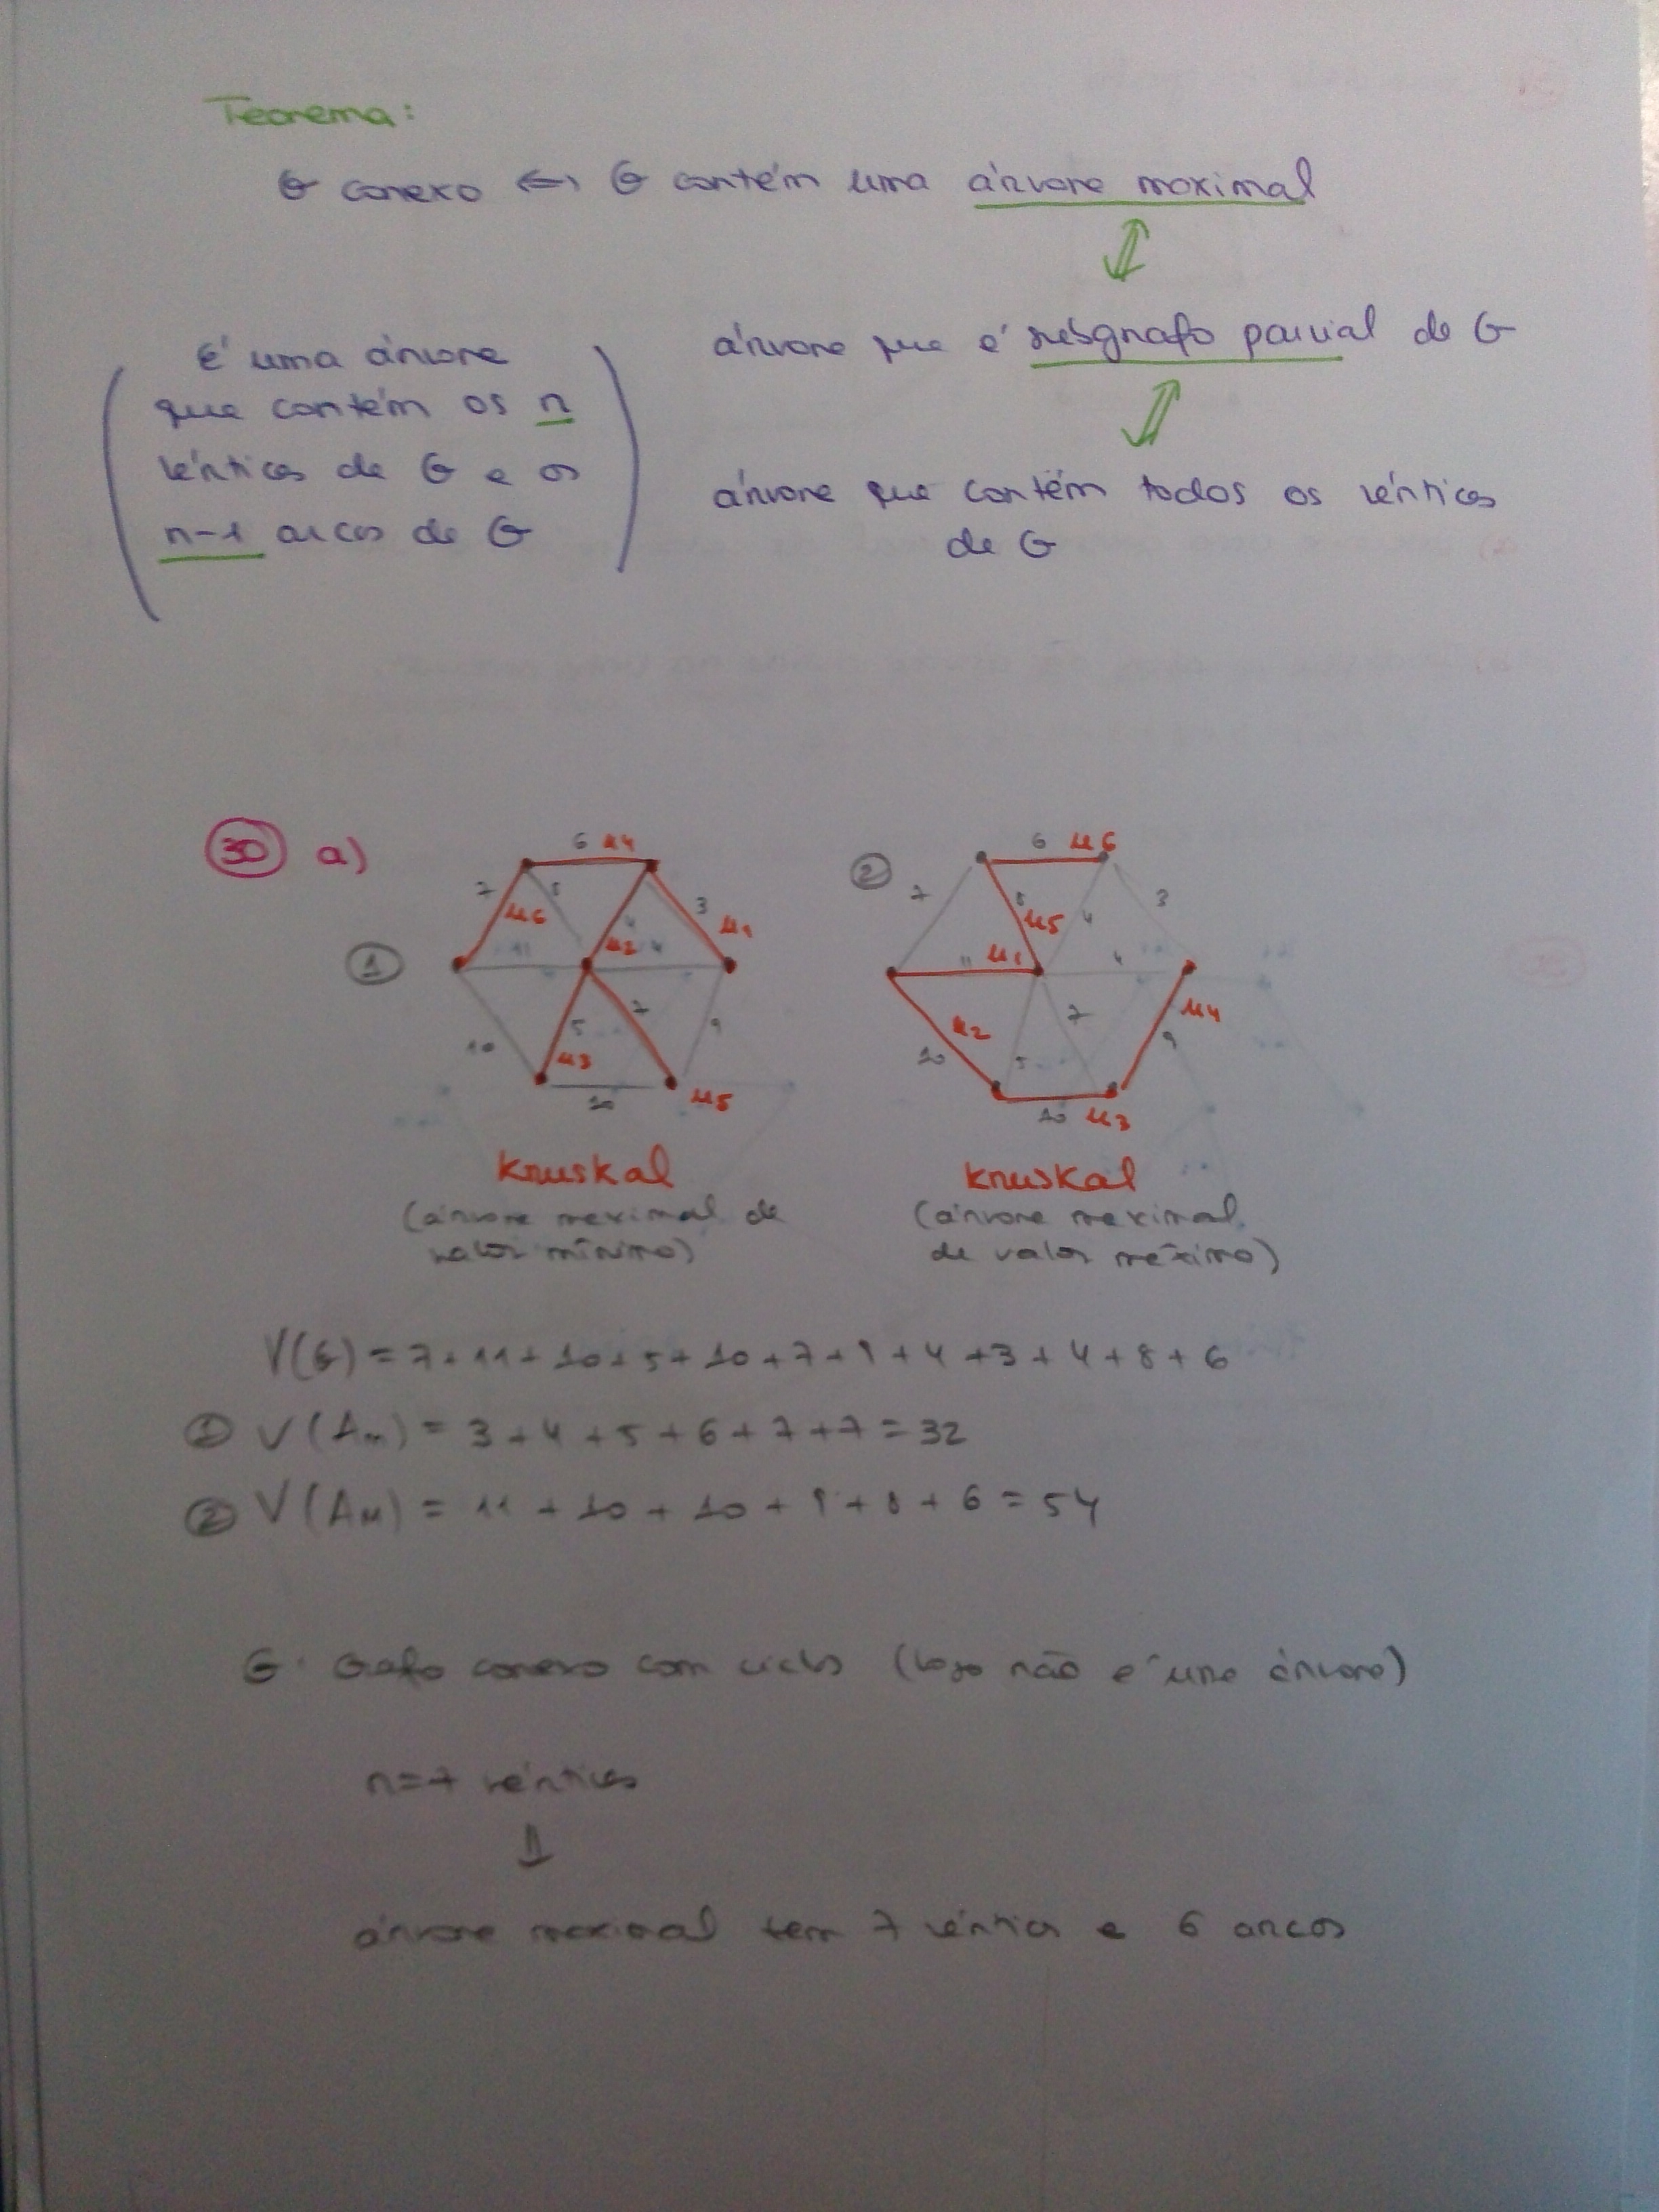 Teorema:
G conexo ⇔ G contém uma árvore maximal
⇕
árvore que é subgrafo parcial de G
⇕
árvore que contém todos os vértices
de G
( é uma árvore
que contém os n
vértices de G e os
n-1 arcos de G )
30 a)
1
6 u4
7 u6
8
11
4 u2
4
3 u1
10
5 u3
7
9
10
u5
Kruskal
(árvore maximal de
valor mínimo)
2
6 u6
7
8 u5
4
3
11 u1
4
u4
u2
10
5
7
9
10 u3
Kruskal
(árvore maximal
de valor máximo)
V(G) = 7+11+10+5+10+7+9+4+3+4+8+6
1 V(Am) = 3+4+5+6+7+7=32
2 V(AM) = 11+10+10+9+8+6=54
G: Grafo conexo com ciclos (logo não é uma árvore)
n=7 vértices
⇓
árvore maximal tem 7 vértices e 6 arcos